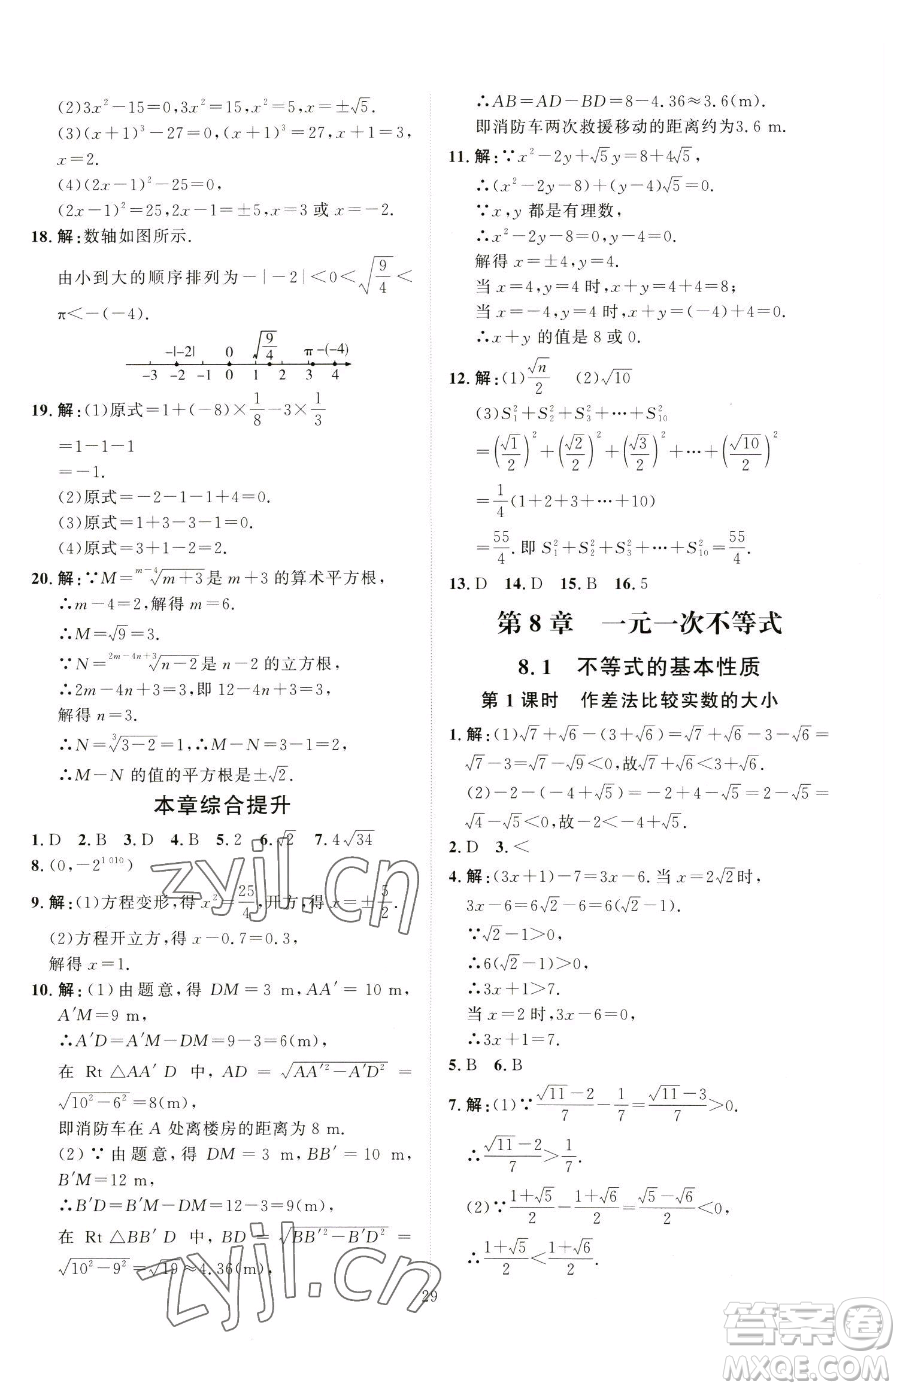 (2)3x²−15=0,3x²=15,x²=5,x=±√5.
(3)(x+1)³−27=0,(x+1)³=27,x+1=3,
x=2.
(4)(2x−1)²−25=0,
(2x−1)²=25,2x−1=±5,x=3或x=−2.
18.解:数轴如图所示.
由小到大的顺序排列为−|−2|<0<√(9/4)<
π<−(−4).
−|−2| 0 √(9/4) π −(−4)
−3 −2 −1 0 1 2 3 4
19.解:(1)原式=1+(−8)×1/8−3×1/3
=1−1−1
=−1.
(2)原式=−2−1−1+4=0.
(3)原式=1+3−3−1=0.
(4)原式=3−6+3=0.
20.解:∵M=ᵐ⁻⁴√(m+3)是m+3的算术平方根,
∴m−4=2,解得m=6.
∴M=√9=3.
∵N=²ᵐ⁻⁴ⁿ⁺³√(n−2)是n−2的立方根,
∴2m−4n+3=3,即12−4n+3=3,
解得n=3.
∴N=³√(3−2)=1,∴M−N=3−1=2.
∴M−N的值的平方根是±√2.
本章综合提升
1.D 2.B 3.D 4.B 5.2 6.√2 7.4√34
8.(0,−2¹⁰¹⁰)
9.解:(1)方程变形,得x²=25/4,开方,得x=±5/2.
(2)方程开立方,得x−0.7=0.3,
解得x=1.
10.解:(1)由题意,得DM=3 m,AA′=10 m,
A′M=9 m,
∴A′D=A′M−DM=9−3=6(m),
在Rt△AA′D中,AD=√(AA′²−A′D²)=
√(10²−6²)=8(m),
即消防车在A处离楼房的距离为8 m.
(2)∵由题意,得DM=3 m,BB′=10 m,
B′M=12 m,
∴B′D=B′M−DM=12−3=9(m),
在Rt△BB′D中,BD=√(BB′²−B′D²)=
√(10²−9²)=√19≈4.36(m),
∴AB=AD−BD=8−4.36≈3.6(m).
即消防车两次救援移动的距离约为3.6 m.
11.解:∵x²−2y+√5y=8+4√5,
∴(x²−2y−8)+(y−4)√5=0.
∵x,y都是有理数,
∴x²−2y−8=0,y−4=0.
解得x=±4,y=4.
当x=4,y=4时,x+y=4+4=8;
当x=−4,y=4时,x+y=(−4)+4=0.
∴x+y的值是8或0.
12.解:(1)√n/2 (2)√10
(3)S₁²+S₂²+S₃²+⋯+S₁₀²
=(√1/2)²+(√2/2)²+(√3/2)²+⋯+(√10/2)²
=1/4(1+2+3+⋯+10)
=55/4.即S₁²+S₂²+S₃²+⋯+S₁₀²=55/4.
13.D 14.D 15.B 16.5
第8章 一元一次不等式
8.1 不等式的基本性质
第1课时 作差法比较实数的大小
1.解:(1)√7+√6−(3+√6)=√7+√6−3−√6=
√7−3=√7−√9<0,故√7+√6<3+√6.
(2)−2−(−4+√5)=−2+4−√5=2−√5=
√4−√5<0,故−2<−4+√5.
2.D 3.<
4.解:(3x+1)−7=3x−6,当x=2√2时,
3x−6=6√2−6=6(√2−1).
∵√2−1>0,
∴6(√2−1)>0,
∴3x+1>7.
当x=2时,3x−6=0,
∴3x+1=7.
5.B 6.B
7.解:(1)∵(√11−2)/7−1/7=(√11−3)/7>0.
∴(√11−2)/7>1/7.
(2)∵(1+√5)/2−(1+√6)/2=(√5−√6)/2<0,
∴(1+√5)/2<(1+√6)/2.
29
zyjl.cn
zyjl.cn
答案圈
MXQE.COM